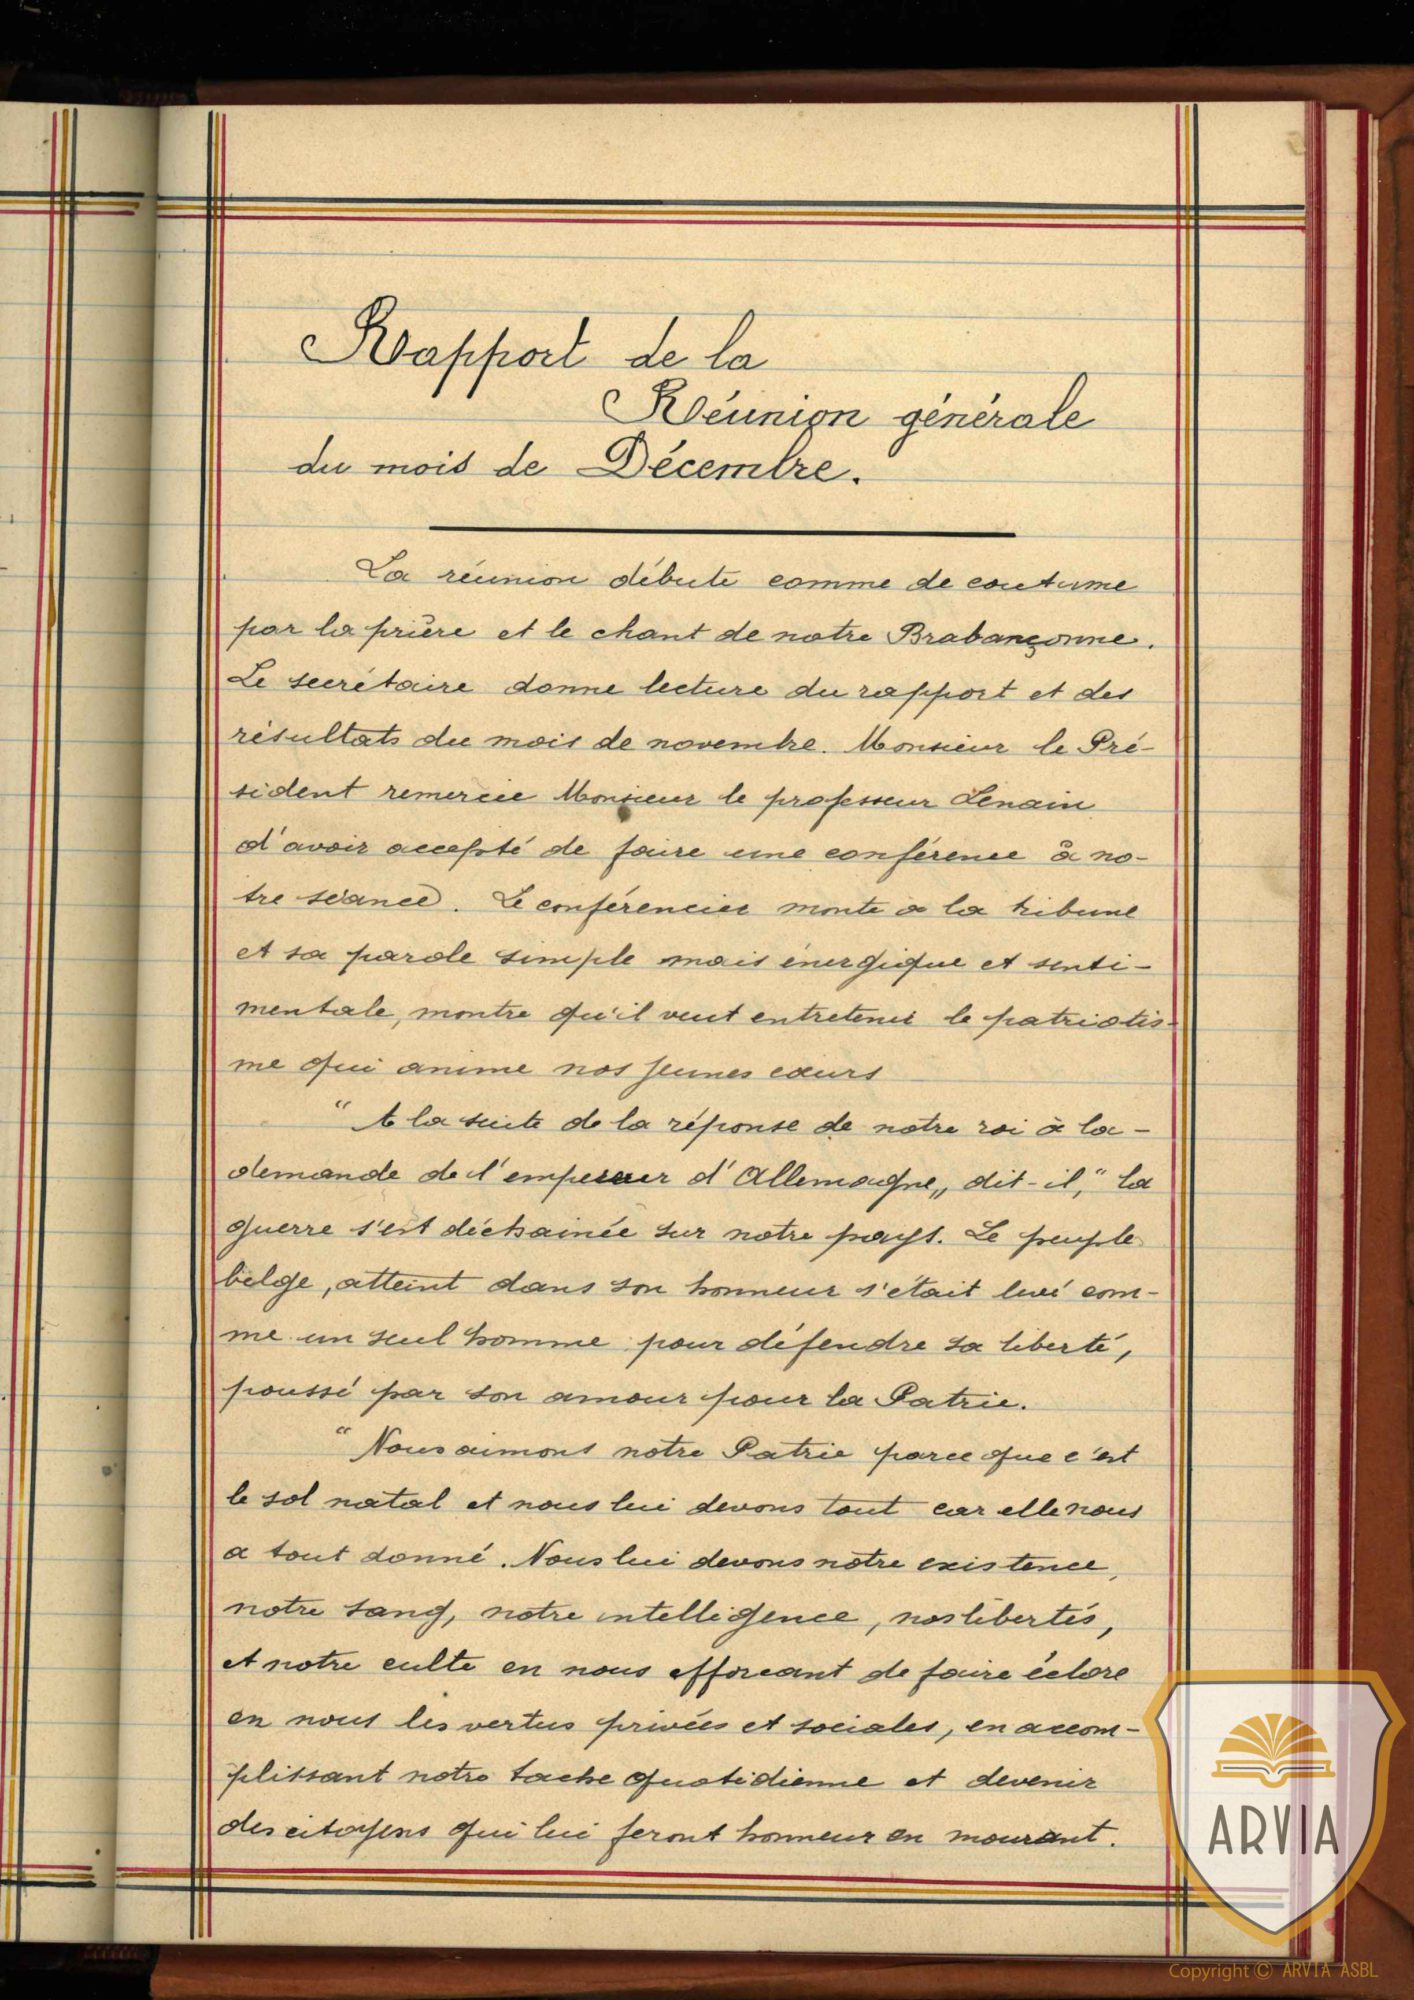 Rapport de la
Réunion générale
du mois de Décembre.
La réunion débute comme de coutume
par la prière et le chant de notre Brabançonne.
Le secrétaire donne lecture du rapport et des
résultats du mois de novembre. Monsieur le Pré-
sident remercie Monsieur le professeur Lenain
d'avoir accepté de faire une conférence à no-
tre séance. Le conférencier monte à la tribune
et sa parole simple mais énergique et senti-
mentale, montre qu'il veut entretenir le patriotis-
me qui anime nos jeunes cœurs
"A la suite de la réponse de notre roi à la-
demande de l'empereur d'Allemagne„ dit-il, "la
guerre s'est déchainée sur notre pays. Le peuple
belge, atteint dans son honneur s'était levé com-
me un seul homme pour défendre sa liberté,
poussé par son amour pour la Patrie.
"Nous aimons notre Patrie parce que c'est
le sol natal et nous lui devons tout car elle nous
a tout donné. Nous lui devons notre existence,
notre sang, notre intelligence, nos libertés,
et notre culte en nous efforcant de faire éclore
en nous les vertus privées et sociales, en accom-
plissant notre tache quotidienne et devenir
des citoyens qui lui feront honneur en mourant.
ARVIA
Copyright © ARVIA ASBL